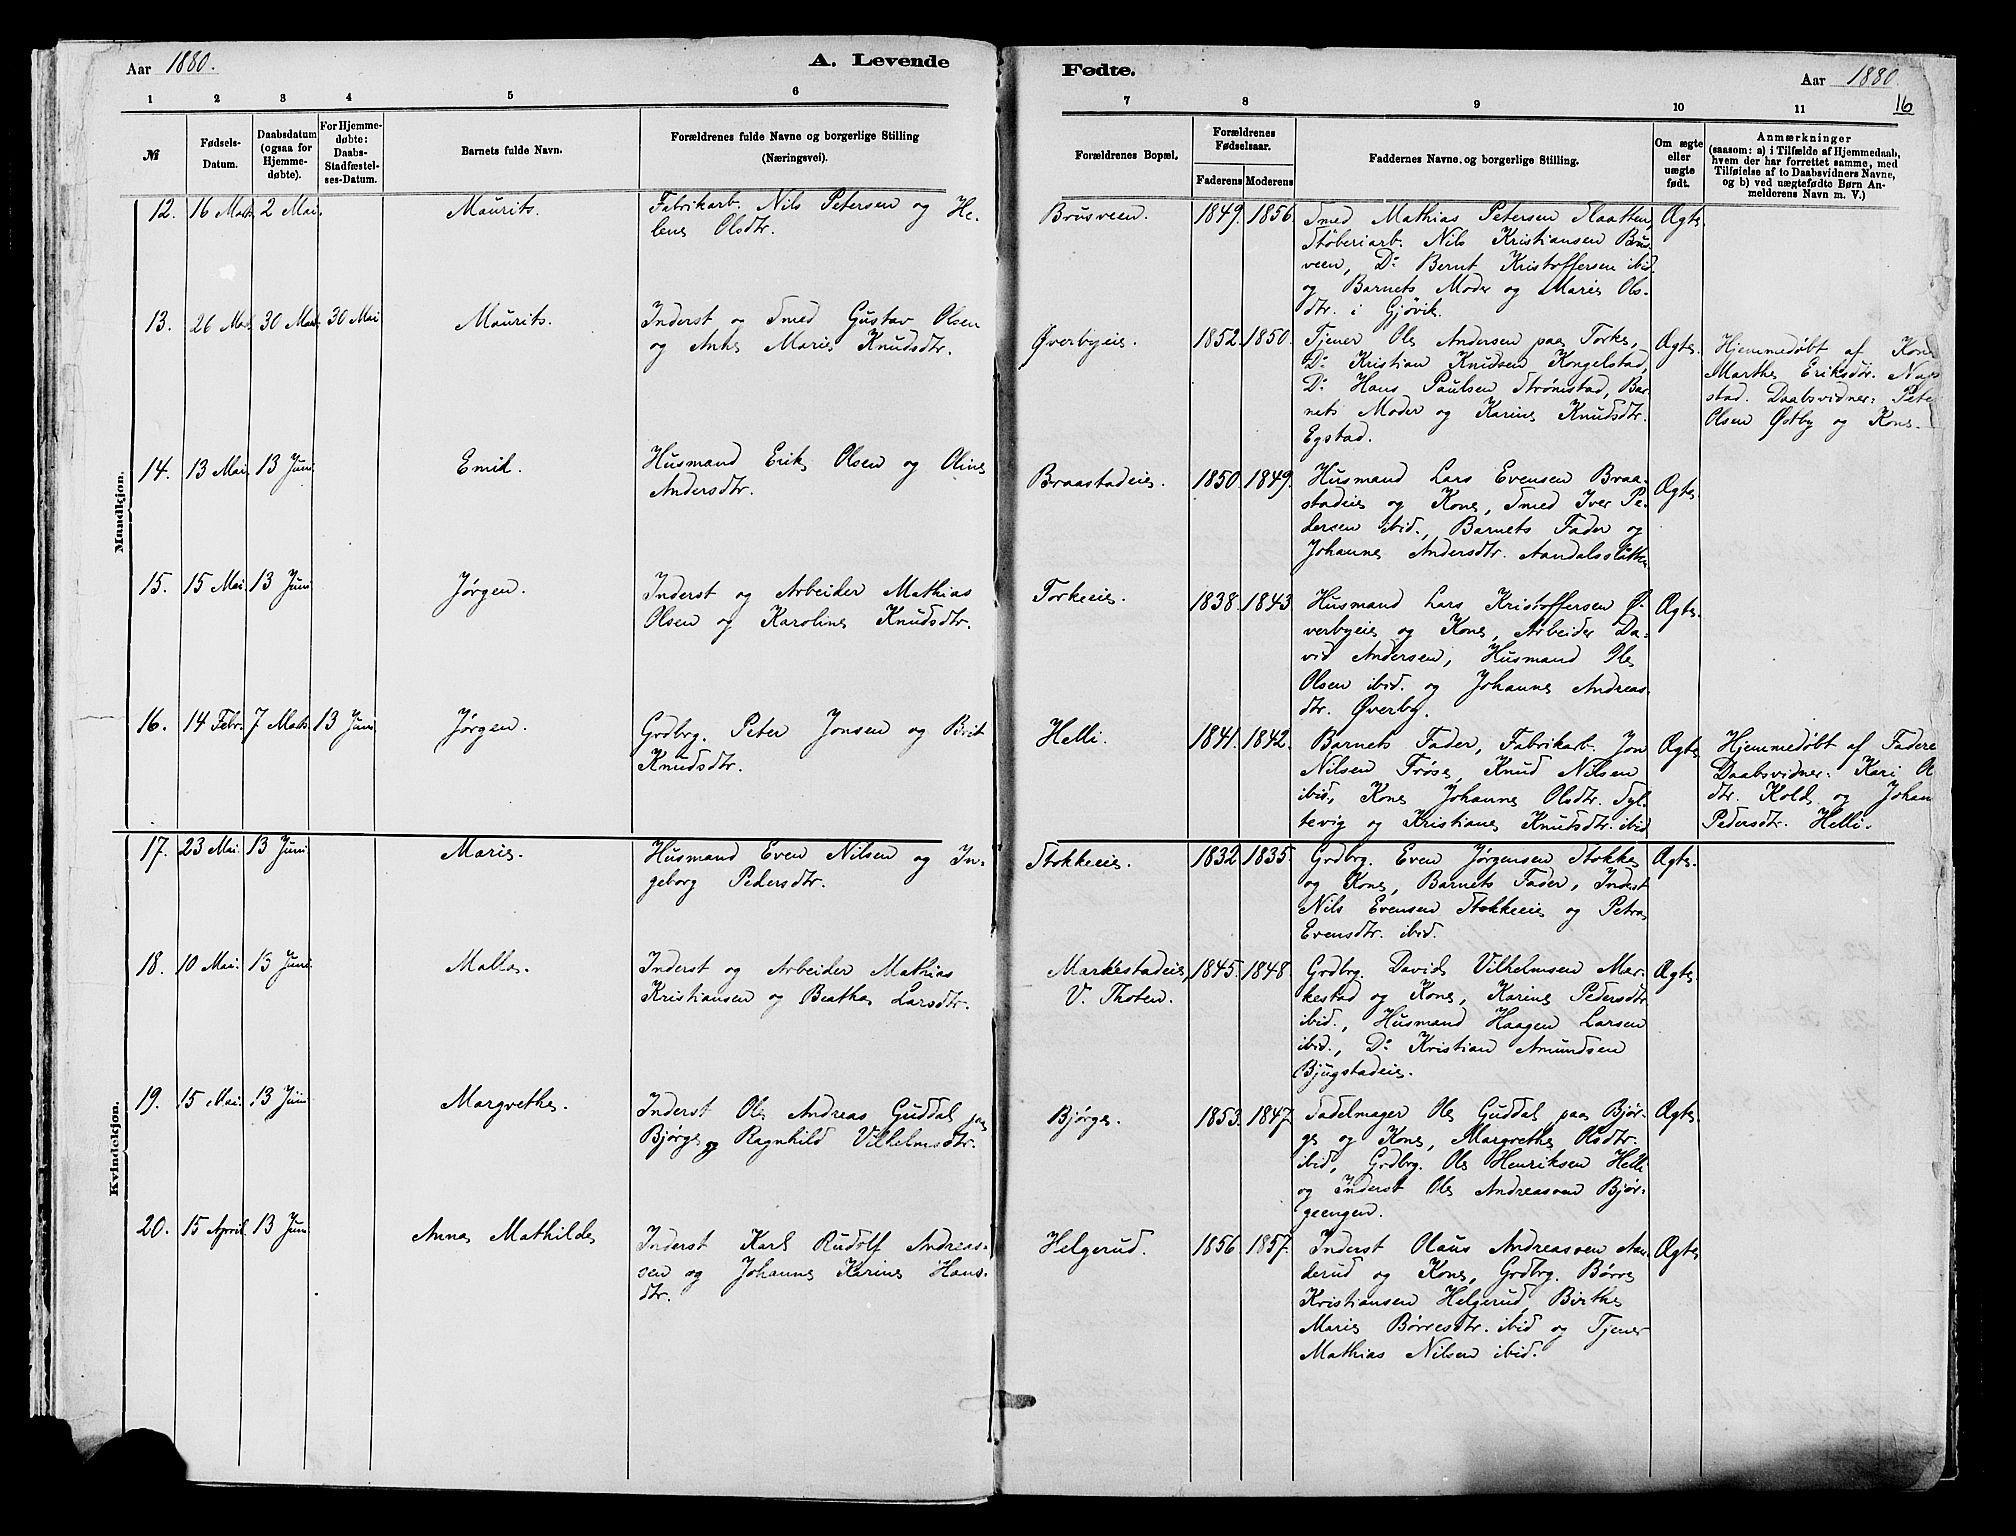 Aar 1880.
A. Levende
1 2 3 4 5 6
№
Fødsels-
Datum.
Daabsdatum
(ogsaa for
Hjemme-
døbte).
For Hjemme-
døbte:
Daabs-
Stadfæstel-
ses-Datum.
Barnets fulde Navn.
Forældrenes fulde Navne og borgerlige Stilling
(Næringsvei).
Mandkjøn.
12. 16 Marts 2 Mai. Maurits. Fabrikarb. Nils Petersen og He-
lene Olsdtr.
13. 26 Marts 30 Marts 30 Mai Maurits. Inderst og Smed Gustav Olsen
og Anne Marie Knudsdtr.
14. 13 Mai. 13 Juni Emil. Husmand Erik Olsen og Oline
Andersdtr.
15. 15 Mai. 13 Juni Jørgen. Inderst og Arbeider Mathias
Olsen og Karoline Knudsdtr.
16. 14 Febr. 7 Marts 13 Juni Jørgen. Grdbrg. Peter Jonsen og Brit
Knudsdtr.
Kvindekjøn.
17. 23 Mai. 13 Juni Marie. Husmand Even Nilsen og In-
geborg Pedersdtr.
18. 10 Mai. 13 Juni Malla. Inderst og Arbeider Mathias
Kristiansen og Beatha Larsdtr.
19. 15 Mai. 13 Juni Margrethe. Inderst Ole Andreas Guddal paa
Bjørge og Ragnhild Vilhelmsdtr.
20. 15 April 13 Juni Anna Mathilde Inderst Karl Rudolf Andreas-
sen og Johanne Karine Hans-
dtr.
Fødte.
Aar 1880
16
7 8 9 10 11
Forældrenes Bopæl.
Forældrenes
Fødselsaar.
Faderens Moderens
Faddernes Navne og borgerlige Stilling.
Om ægte
eller
uægte
født.
Anmærkninger
(saasom: a) i Tilfælde af Hjemmedaab,
hvem der har forrettet samme, med
Tilføielse af to Daabsvidners Navne,
og b) ved uægtefødte Børn An-
melderens Navn m. V.)
Brusveen. 1849. 1856. Smed Mathias Petersen Slaatten, Ægte.
Støberiarb. Nils Kristiansen Brus-
veen, Do Bernt Kristoffersen ibid.
og Barnets Moder og Marie Ols-
dtr. i Gjøvik.
Øverbyeie. 1852. 1850. Tjener Ole Andersen paa Torke, Ægte. Hjemmedøbt af Kone
Do Kristian Knudsen Kongelstad, Marthe Eriksdtr.
Do Hans Paulsen Strømstad, Bar- stad. Daabsvidner: Pete
nets Moder og Karine Knudsdtr. Olsen Østby og Kone.
Egstad.
Braastadeie. 1850. 1849. Husmand Lars Evensen Braa- Ægte
stadeie og Kone, Smed Iver Pe-
dersen ibid., Barnets Fader og
Johanne Andersdtr. Aandalsslåtten
Torkeeie. 1838. 1843. Husmand Lars Kristoffersen Ø- Ægte.
verbyeie og Kone, Arbeider Da-
vid Andersen, Husmand Ole
Olsen ibid. og Johanne Andreas-
dtr. Øverby.
Helli. 1841. 1842. Barnets Fader, Fabrikarb. Jon Ægte Hjemmedøbt af Fadere
Nilsen Frøse, Knud Nilsen Daabsvidner: Kari O
ibid, Kone Johanne Olsdtr. Syl- dtr. Kold og Johan
tevig og Kristiane Knutsdtr. ibid Pedersdtr. Helli.
Stokkeeie. 1832 1835. Grdbrg. Even Jørgensen Stokke Ægte.
og Kone, Barnets Fader, Inderst
Nils Evensen Stokkeeie og Petra
Evensdtr. ibid.
Markestadeie, 1845. 1848. Grdbrg. David Vilhelmsen Mar- Ægte.
V. Thoten. kestad og Kone, Karine Pedersdtr
ibid., Husmand Haagen Larsen
ibid., Do Kristian Amundsen
Bjugstadeie.
Bjørge. 1853. 1847. Sadelmager Ole Guddal paa Bjør- Ægte.
ge og Kone, Margrethe Olsdtr.
ibid, Grdbrg. Ole Henriksen Helli
og Inderst Ole Andreassen Bjør-
geengen.
Helgerud. 1856 1857. Inderst Olaus Andreassen Aan- Ægte
derud og Kone, Grdbrg. Børre
Kristiansen Helgerud, Birthe
Marie Børresdtr. ibid og Tjener
Mathias Nilsen ibid.